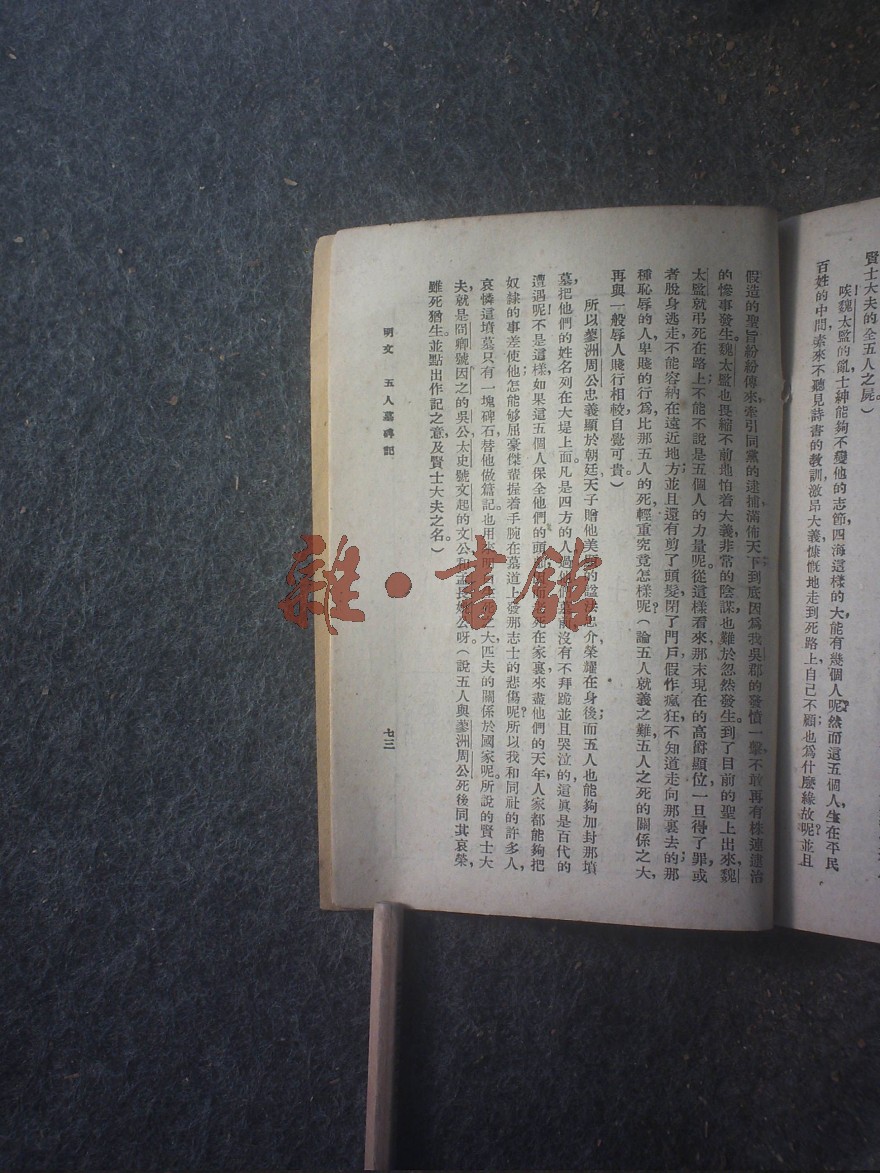 賢士大夫的全五人之屍。）
唉魏太監的亂士紳能夠不變他的志節，四海這樣的大能有幾個人呢？然而這五個人，生在平民
百姓的中間，素來不聽見詩書的教訓，激昂大義，慷慨地走到死路上，自己不顧，也爲什麼緣故呢？並且
假造的聖旨紛紛傳來，牽引同黨的逮捕，滿佈天下；到底因爲我吳郡的發憤一擊，不敢再有株連逮治
的慘事發生。魏太監也畏縮不前地怕着大義，非常的陰謀也難於忽然發生。到了目前的聖上出來，魏
太監就弔死在路上；不能不說是五個人的力量呢。從這樣看來，那末現在的高爵顯位，一旦得了罪，或
者脫身逃走，不能容納在遠近地方；並且還有剪了頭髮，閉了門戶，假作瘋狂，不知道走向那裏去的；那
種恥辱的人，卑賤的行爲，比那五人的死，輕重究竟怎樣呢？（論五人就義之難，五人之死的關係之大，
再與一般辱人賤行相較，自覺可貴。）
所以蓼洲周公忠義顯於朝廷，天子贈他美的諡法忠介，榮耀在身後；而五人也能夠加封那墳
墓，把他們的姓名列在大堤上面。凡是四方的人，過他們墓前，沒有不拜跪並且哭泣的，這眞是百代的
遭遇呢！不是這樣，如果這五個人保全他們的頭，死在家裏，來盡他們的天年，人家都能夠把
奴隸的事差使他；怎能夠屈豪傑輩，握着手腕在墓道上，發那志士的悲傷呢？所以我和同社的許多人，
哀憐這墳墓只有一塊碑石，替他做篇記。也用來明白之大，匹夫的關係於國家呢。所說的賢士大
夫，就是冏卿號因之的吳公，太史號文起的文公和孟長姚公呀。（說五人與蓼洲周公死後同其哀榮，
雖死猶生，並點出作記之意，及賢士大夫之名。）
明文 五人墓碑記
七三
雜·書館